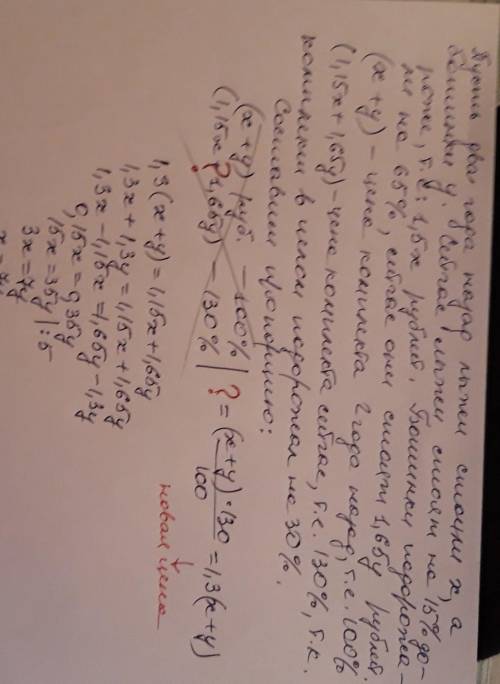 Пусть два года назад лыжи стоили x, а
ботинки y. Сейчас лыжи стоят на 15% до-
роже, т.е. 1,15x рублей. Ботинки подорожа-
ли на 65%, сейчас они стоят 1,65y рублей.
(x+y) – цена комплекта 2 года назад, т.е. 100%
(1,15x+1,65y) – цена комплекта сейчас, т.е. 130%, т.к.
комплект в целом подорожал на 30%.
Составим пропорцию:
(x+y) руб. – 100%
(1,15x+1,65y) – 130% | ? = (x+y)·130/100 = 1,3(x+y)
?
новая цена
1,3(x+y)=1,15x+1,65y
1,3x+1,3y=1,15x+1,65y
1,3x-1,15x=1,65y-1,3y
0,15x=0,35y
15x=35y |:5
3x=7y